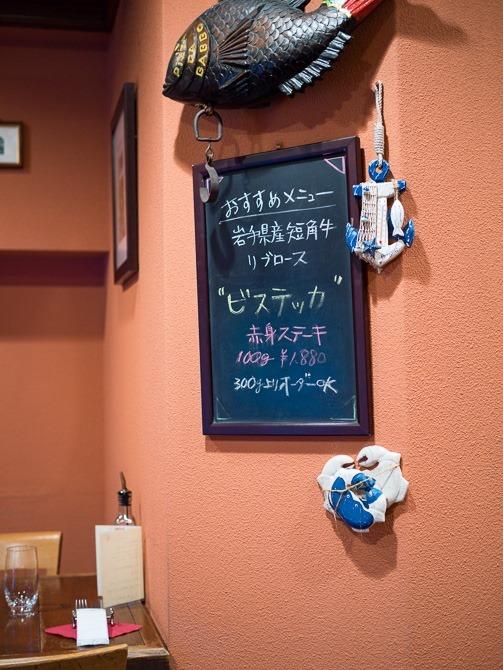 GABBO
おすすめメニュー
岩手県産短角牛
リブロース
"ビステッカ"
赤身ステーキ
100g ¥1,880
300gよりオーダーOK